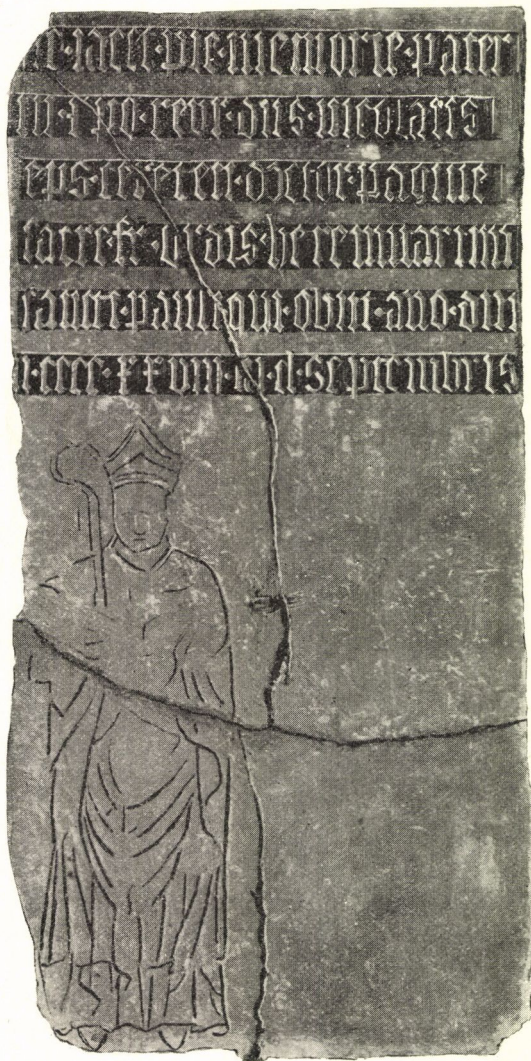 iacet · memorie · pater
in · xpo · revr · dns · nicolaus
eps · doctor · pagine
sacre · fr · ordis · heremitarum
sancti · pauli · qui · obiit · ano · dni
m · cccc · septembris